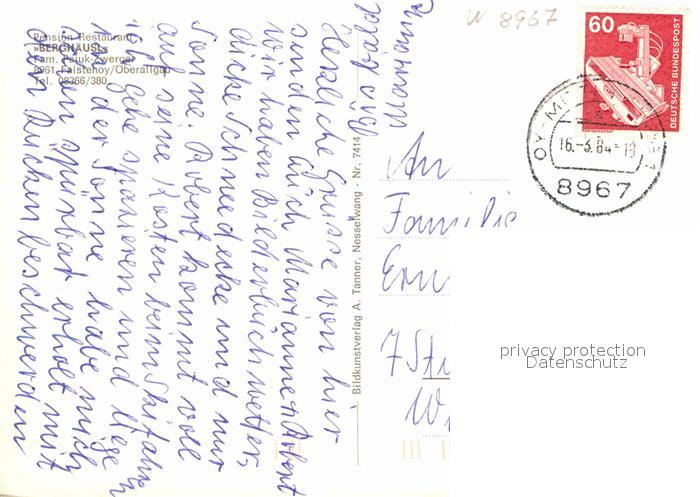 Pension Restaurant
»BERGHÄUSL«
Fam. Paluk-Zwerger
8961 Faistenoy/Oberallgäu
Tel. 08366/380
Herzliche Grüsse von hier
senden Euch Marianne + Robert
Wir haben Bilderbuchwetter,
dicke Schneedecke und nur
Sonne. Robert kommt voll
auf seine Kosten beim Skifahren
ich gehe spazieren und liege
in der Sonne habe mich
schon spürbar erholt mit
den Rückenbeschwerden
Marianne
Bildkunstverlag A. Tanner, Nesselwang - Nr. 7414
W 8967
60
DEUTSCHE BUNDESPOST
OY-MI
16.-3.84-18
8967
An
Familie
7 St
privacy protection
Datenschutz